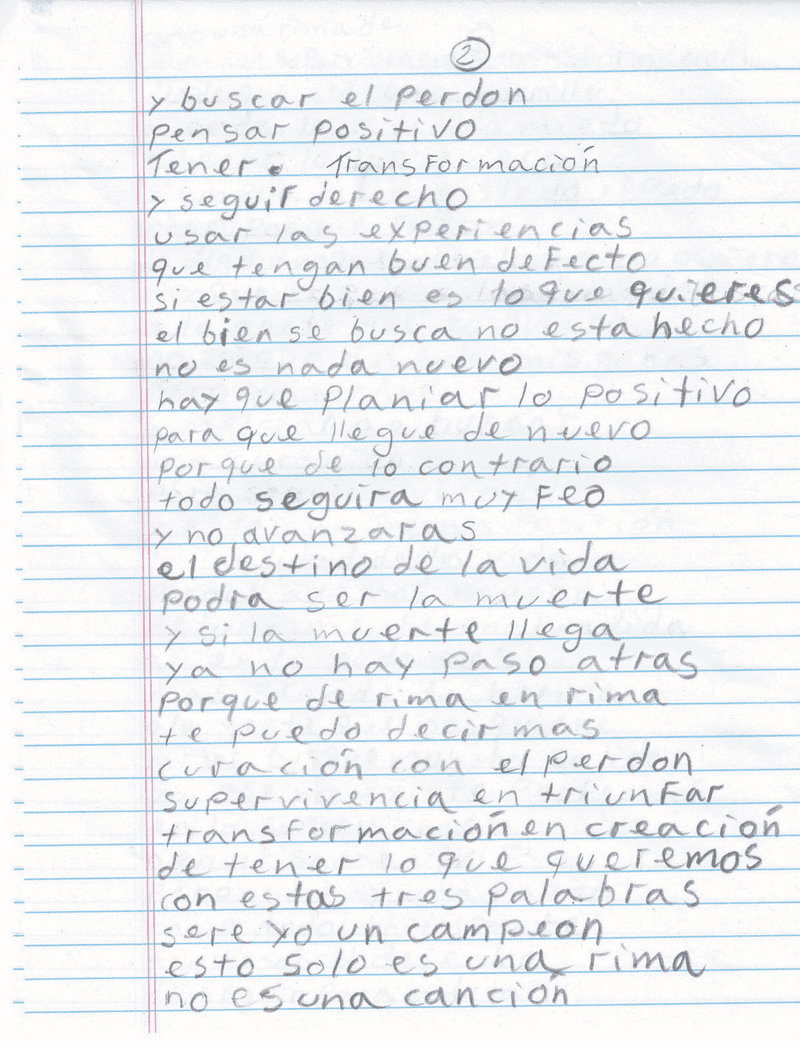 2
y buscar el perdon
pensar positivo
Tener. Transformación
y seguir derecho
usar las experiencias
que tengan buen defecto
si estar bien es lo que quieres
el bien se busca no esta hecho
no es nada nuevo
hay que planiar lo positivo
para que llegue de nuevo
porque de lo contrario
todo seguira muy feo
y no avanzaras
el destino de la vida
podra ser la muerte
y si la muerte llega
ya no hay paso atras
porque de rima en rima
te puedo decir mas
curación con el perdon
supervivencia en triunfar
transformación en creación
de tener lo que queremos
con estas tres palabras
sere yo un campeon
esto solo es una rima
no es una canción